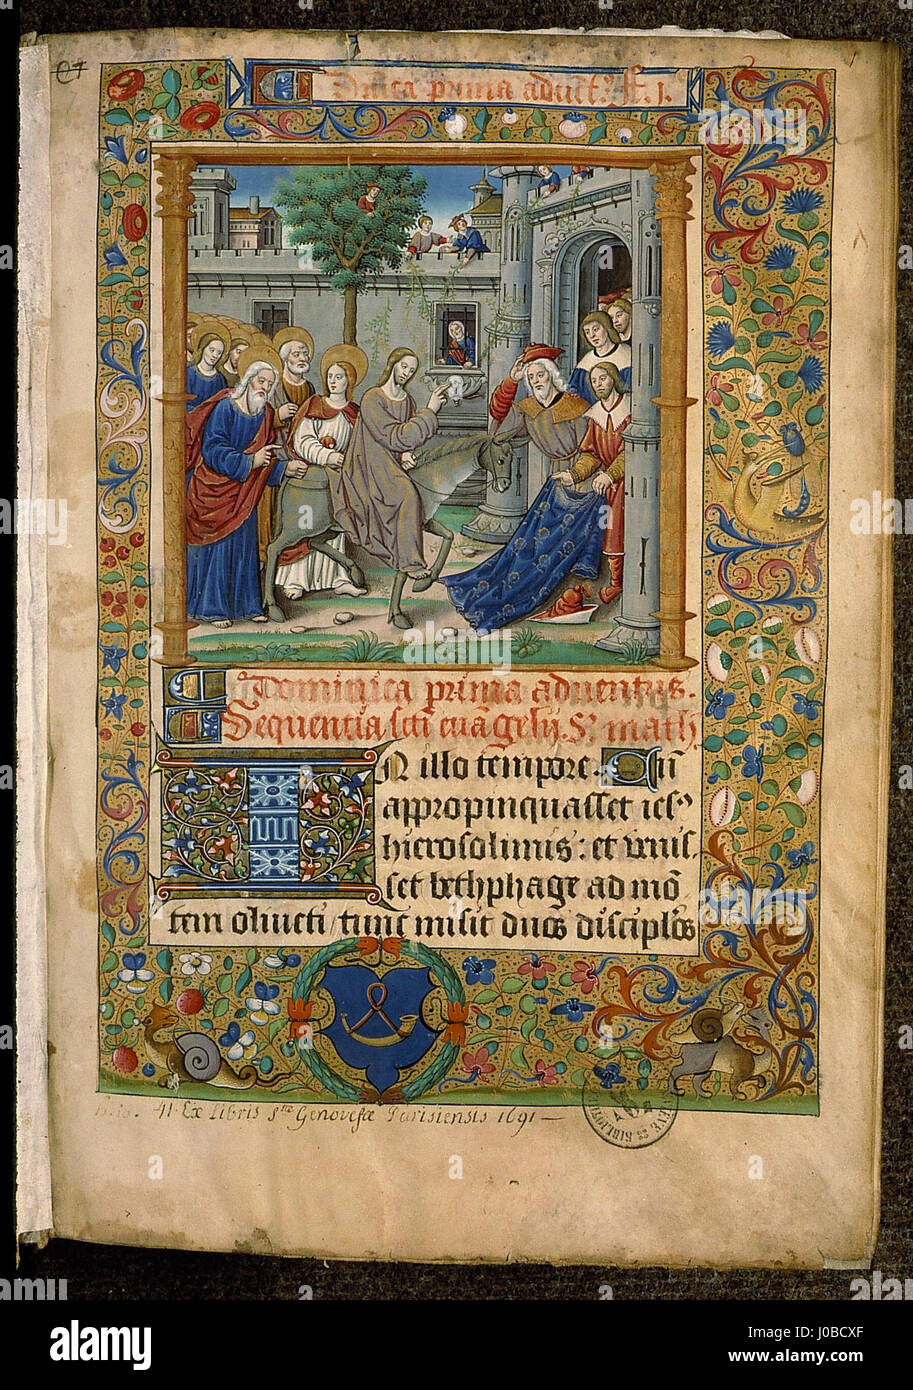 Dñica prima aduēt. F. I.
Dominica prima aduentus.
Sequentia scti euāgelij. S. math
IN illo tempore. Cū
appropinquasset ies⁹
hierosolimis: et venis-
set bethphage ad mō
tem oliueti / tunc misit duos discipľos
41. Ex Libris Stæ Genovefæ Parisiensis 1691
BIBLIOTH
alamy
Image ID: J0BCXF
www.alamy.com